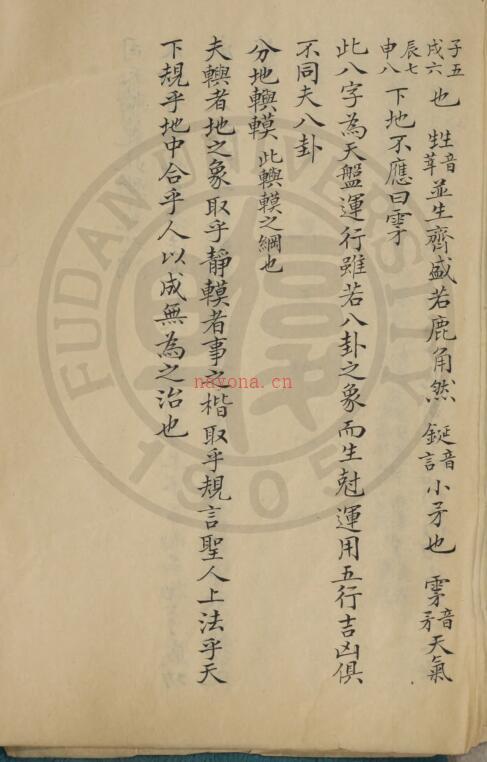 子五
戌六也 甡音莘並生齊盛若鹿角然 鋋音言小矛也 雺音矛天氣
辰七
申八下地不應曰雺
此八字為天盤運行雖若八卦之象而生尅運用五行吉凶俱
不同夫八卦
分地輿䡮 此輿䡮之綱也
夫輿者地之象取乎靜䡮者事之楷取乎規言聖人上法乎天
下規乎地中合乎人以成無為之治也
FUDAN UNIVERSITY
1905
nayona.cn